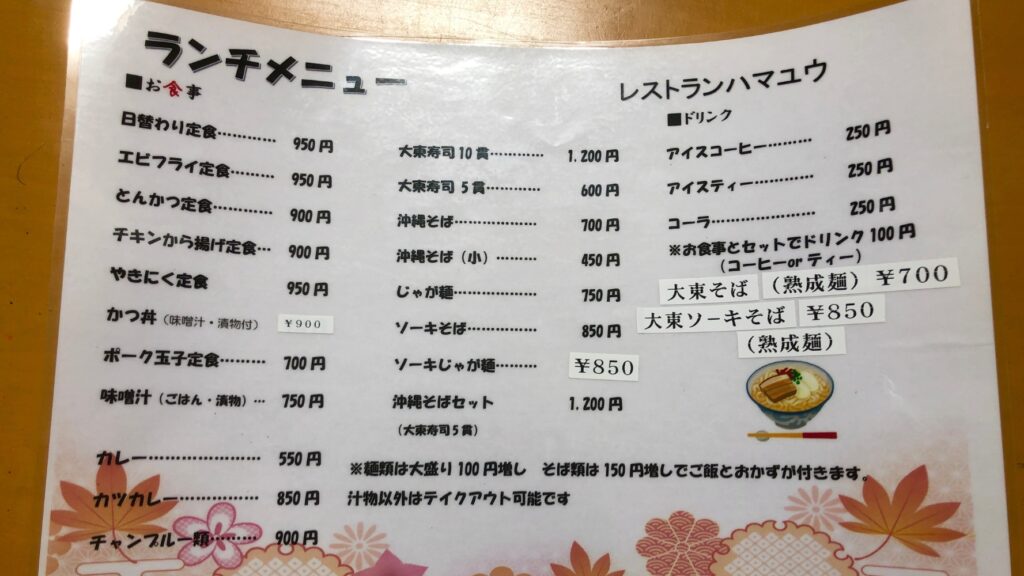 ランチメニュー
■お食事
日替わり定食………… 950円
エビフライ定食……… 950円
とんかつ定食………… 900円
チキンから揚げ定食… 900円
やきにく定食 950円
かつ丼(味噌汁・漬物付) ¥900
ポーク玉子定食……… 700円
味噌汁(ごはん・漬物)… 750円
カレー………………… 550円
カツカレー…………… 850円
チャンプルー類……… 900円
大東寿司10貫………… 1.200円
大東寿司5貫………… 600円
沖縄そば……………… 700円
沖縄そば(小)……… 450円
じゃが麺……………… 750円
ソーキそば…………… 850円
ソーキじゃが麺……… ¥850
沖縄そばセット 1.200円
(大東寿司5貫)
※麺類は大盛り100円増し そば類は150円増しでご飯とおかずが付きます。
汁物以外はテイクアウト可能です
レストランハマユウ
■ドリンク
アイスコーヒー……… 250円
アイスティー………… 250円
コーラ………………… 250円
※お食事とセットでドリンク100円
(コーヒーorティー)
大東そば (熟成麺) ¥700
大東ソーキそば ¥850
(熟成麺)